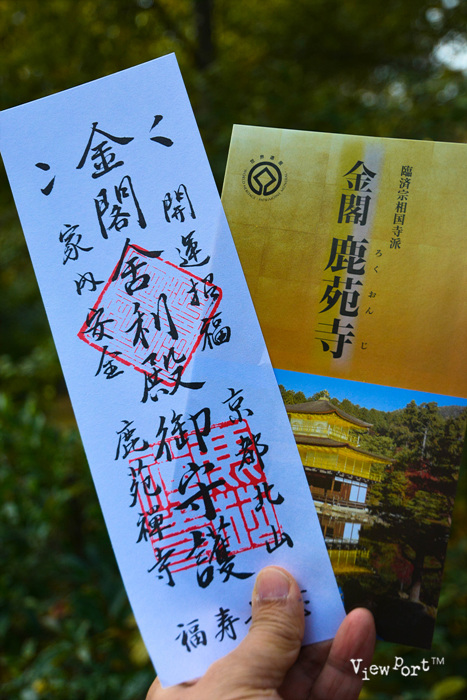 金閣舎利殿御守護
開運招福
家内安全
京都北山
鹿苑禅寺
福寿
臨済宗相国寺派
金閣 鹿苑寺
ろくおんじ
View Port™